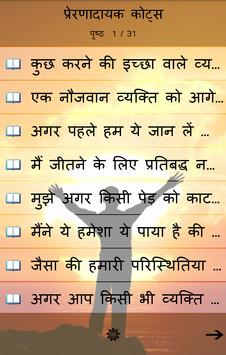 प्रेरणादायक कोट्स
पृष्ठ 1 / 31
कुछ करने की इच्छा वाले व्य...
एक नौजवान व्यक्ति को आगे...
अगर पहले हम ये जान लें ...
मैं जीतने के लिए प्रतिबद्ध न...
मुझे अगर किसी पेड़ को काट...
मैंने ये हमेशा ये पाया है की ...
जैसा की हमारी परिस्थितिया ...
अगर आप किसी भी व्यक्ति ...